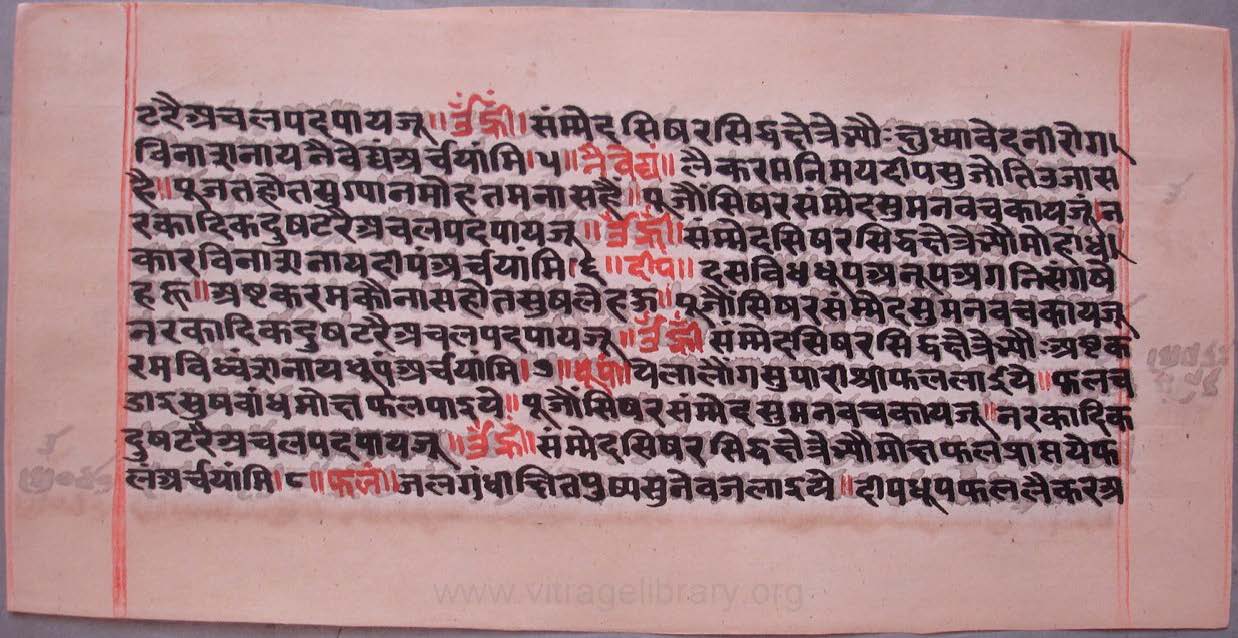 टरैअचलपदपायजू॥ उँ ह्रीं। संम्मेदसिषरसिद्धक्षेत्रेभ्यौः क्षुध्यावेदनीरोग।
विनाशनायनैवेद्यंअर्चयांमि।५॥ नैवेद्यं॥ लैकरमनिमयदीपसुजोतिउजास
है॥ पूजतहोतसुग्यानमौहतमनासहै॥ पूजौंसिषरसंम्मेदसुमनवचकायजू।न
रकादिकदुषटरैअचलपदपायजू॥ उँ ह्रीं॥ संम्मेदसिषरसिद्धक्षेत्रेभ्यौमोहांध।
कारविनाशनायदीपंअर्चयांमि।६॥ दीप॥ दसविधधूपअनूपअगनि
॥ अश्टकरमकौनासहोतसुषलेहऊ॥ पूजौंसिषरसंम्मेदसुमनवचकायजू
नरकादिकदुषटरैअचलपदपायजू॥ उँ ह्रीं॥ संम्मेदसिषरसिद्धक्षेत्रेभ्यौःअश्टक
रमविध्वंशनायधूपंअर्चयांमि।७॥ धूपं॥ येलालोंगसुपारीश्रीफललाइये॥ फलच
डाइसुषवांधमोक्षफलपाइये॥ पूजौंसिषरसंम्मेदसुमनवचकायजू॥ नरकादिक
दुषटरैअचलपदपायजू॥ उँ ह्रीं॥ संम्मेदसिषरसिद्धक्षेत्रेभ्यौमोक्षफलप्राप्तयेफ
लंअर्चयांमि।८॥ फलं॥ जलगंधाक्षितपुष्पसुनेवजलाइये॥ दीपधूपफललैकरअ
www.vitragelibrary.org